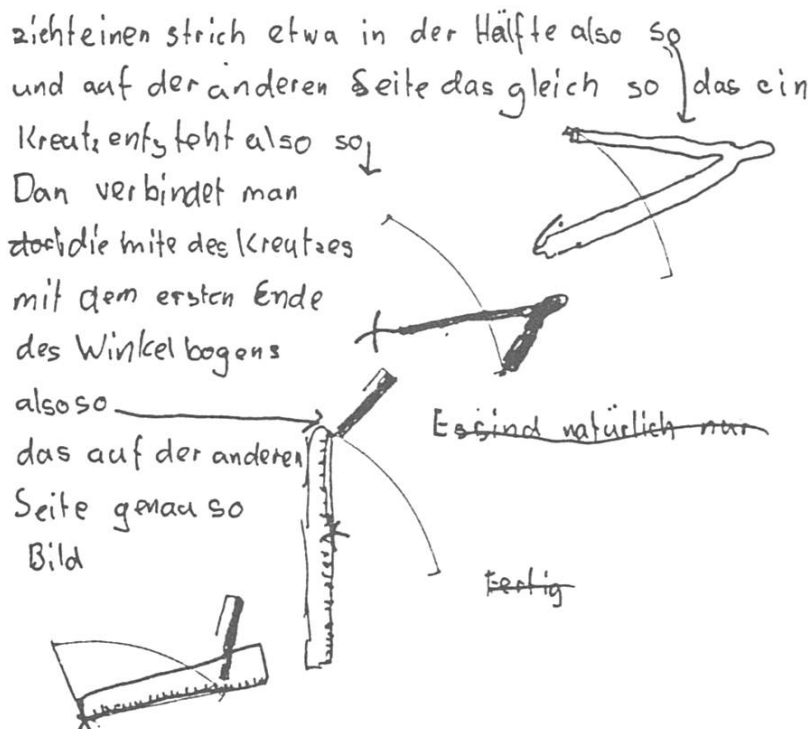 ziehteinen strich etwa in der Hälfte also so
und auf der anderen Seite das gleich so das ein
Kreutz entsteht also so
Dan verbindet man
die mite des Kreutzes
mit dem ersten Ende
des Winkelbogens
also so
das auf der anderen
Seite genau so
Bild
Es sind natürlich nur
Fertig